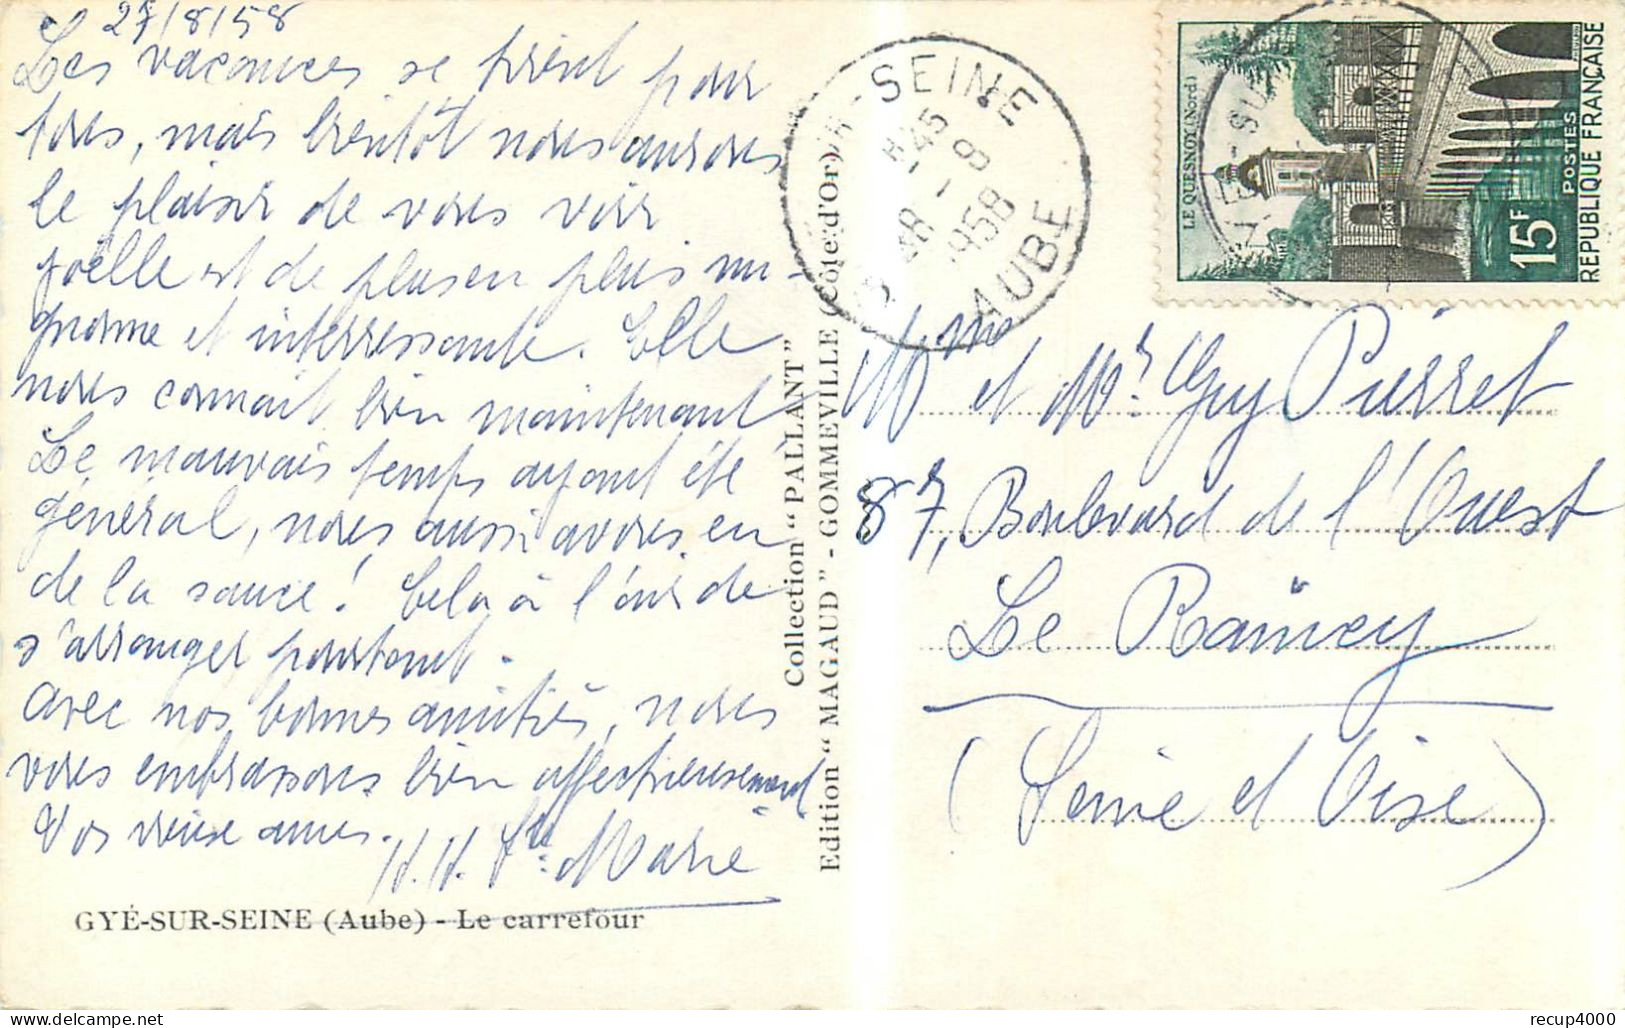 Le 27/8/58
Les vacances se tirent pour
tous, mais bientôt nous aurons
le plaisir de vous voir
Joëlle est de plus en plus mi-
gnonne et interressante. Elle
nous connait bien maintenant
Le mauvais temps ayant été
général, nous aussi avons en
de la sauce! Cela à l'air de
s'arranger pourtant.
avec nos bonnes amitiés, nous
vous embrassons bien affectueusement
Vos vieux amis.
Marie
GYÉ-SUR-SEINE (Aube) - Le carrefour
Collection "PALLANT"
Edition "MAGAUD" - GOMMEVILLE (Côte-d'Or)
SEINE
8 45
28 - 8
1958
AUBE
LE QUESNOY (Nord)
15F
POSTES
REPUBLIQUE FRANÇAISE
Mme et Mr. Guy Pierret
87, Boulevard de l'Ouest
Le Raincy
(Seine et Oise)
recup4000